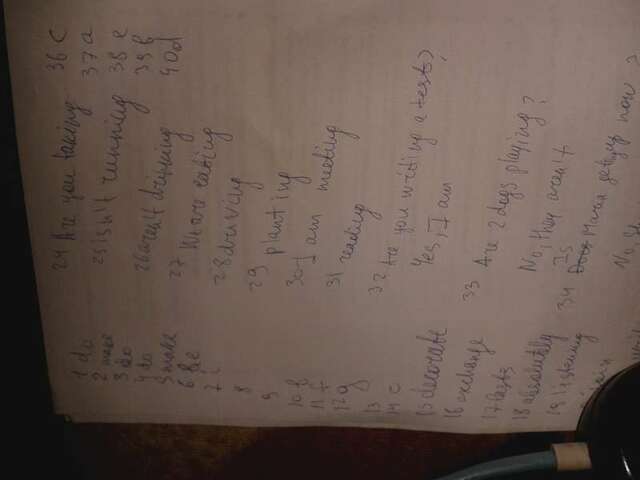 1 do
2 make
3 do
4 do
5 make
6 be
7 c
8
9
10 b
11 f
12 g
13
14 c
15 decorate
16 exchange
17 lasts
18 absolutely
19 listening
24 Are you taking
25 isn't running
26 aren't drinking
27 We are eating
28 driving
29 planting
30 I am meeting
31 reading
32 Are you writing a test?
Yes, I am
33 Are 2 dogs playing?
No, they aren't
34 Is Maria getting up now?
No, she
36 c
37 a
38 e
39 b
40 d